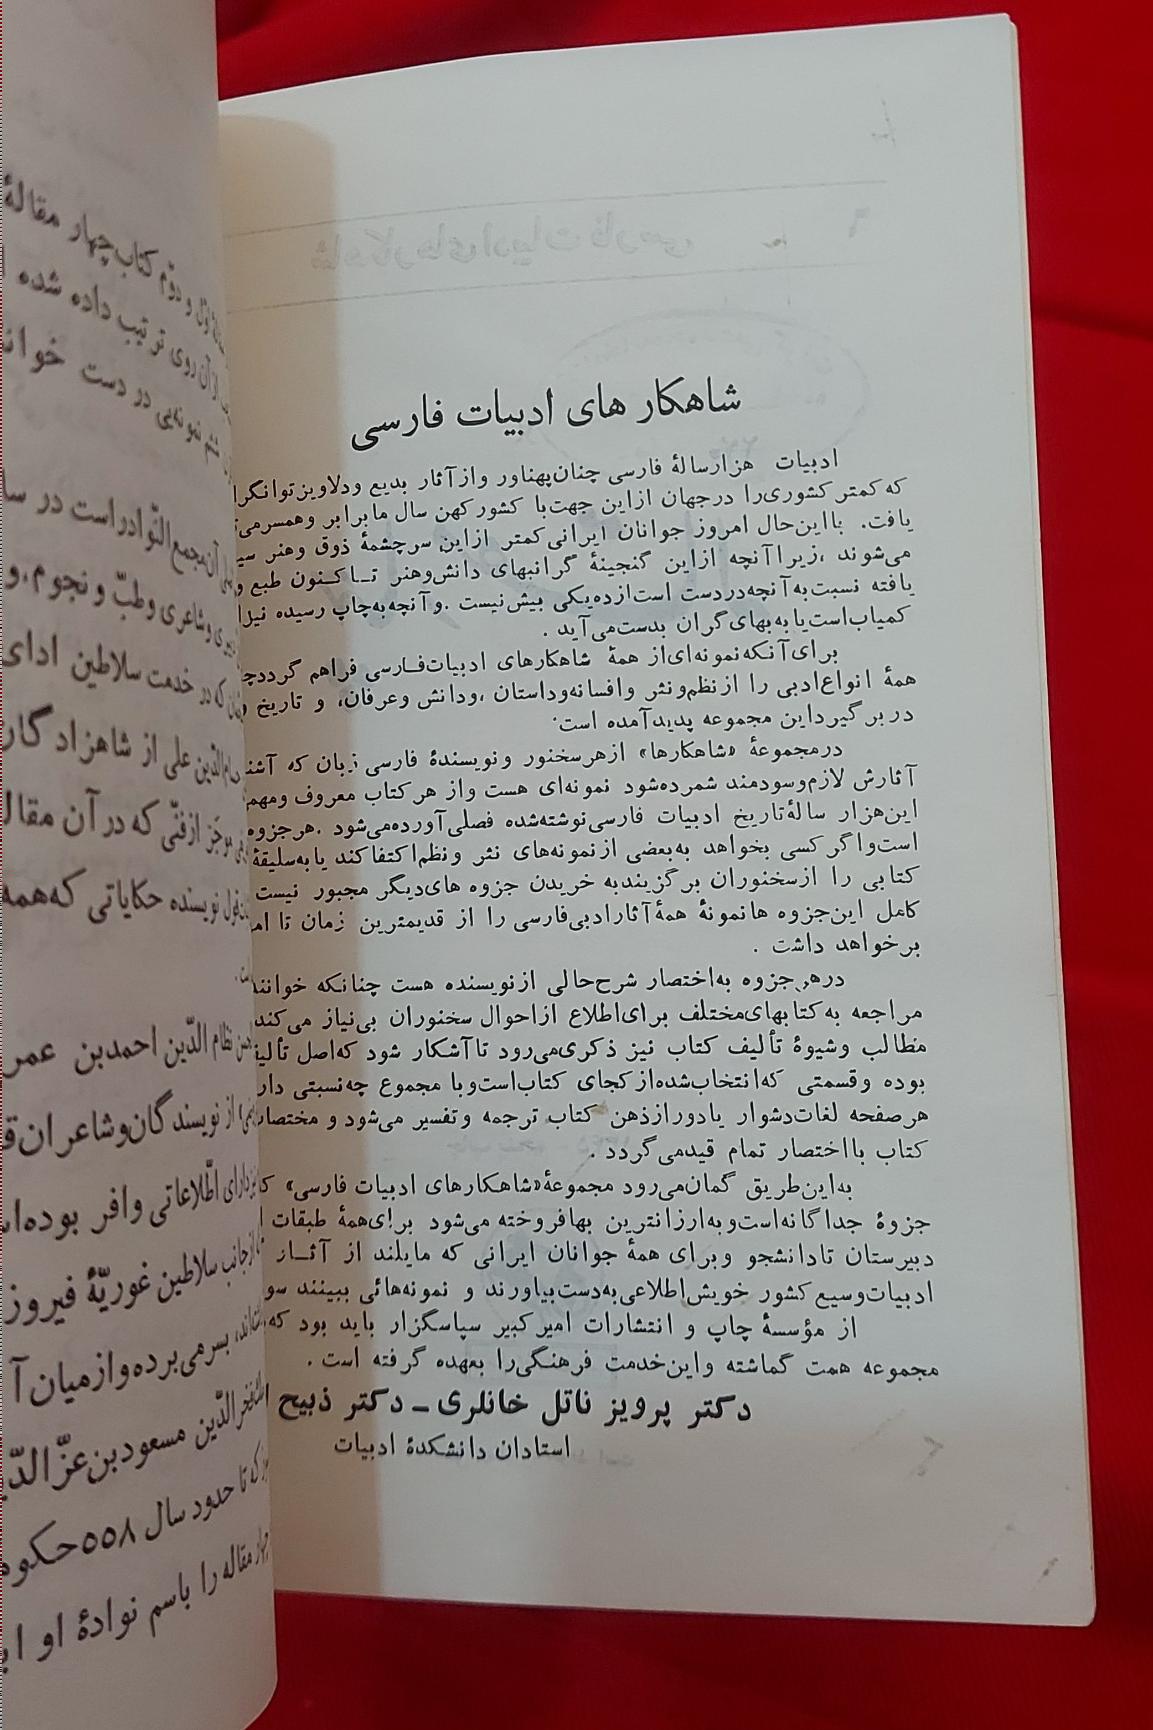 شاهکار های ادبیات فارسی
ادبیات هزارسالهٔ فارسی چنان‌پهناور واز آثار بدیع ودلاویز توانگر
که کمتر کشوری‌را درجهان ازاین جهت‌با کشور کهن سال ما برابر وهمسر
یافت. بااین‌حال امروز جوانان ایرانی کمتر ازاین سرچشمهٔ ذوق وهنر
می‌شوند ،زیرا آنچه ازاین گنجینهٔ گرانبهای دانش‌وهنر تــاکــنون طبع
یافته نسبت‌به آنچه‌دردست است‌ازده‌یکی بیش‌نیست .و آنچه‌به‌چاپ رسیده
کمیاب‌است‌یا به‌بهای گران بدست‌می‌آید .
برای‌آنکه نمونه‌ای‌از همهٔ شاهکارهای ادبیات‌فــارسی فراهم گردد
همهٔ انواع‌ادبی را ازنظم‌ونثر وافسانه‌وداستان ،ودانش وعرفان، و تاریخ
دربر گیرد‌این مجموعه پدیدآمده است.
درمجموعهٔ «شاهکارها» ازهرسخنور ونویسندهٔ فارسی زبان که
آثارش لازم‌وسودمند شمرده‌شود نمونه‌ای هست واز هرکتاب معروف ومهم
این‌هزار سالهٔ‌تاریخ ادبیات فارسی‌نوشته‌شده فصلی‌آورده‌می‌شود .هرجزوه
است‌واگر کسی بخواهد به‌بعضی ازنمونه‌های نثر ونظم‌اکتفا کند یا به‌سلیقهٔ
کتابی را ازسخنوران برگزیند‌به خریدن جزوه های‌دیگر مجبور نیست
کامل این‌جزوه ها‌نمونهٔ همهٔ آثارادبی‌فارسی را از قدیمترین زمان تا
برخواهد داشت .
درهر‌جزوه به‌اختصار شرح‌حالی ازنویسنده هست چنانکه
مراجعه به‌کتابهای‌مختلف برای‌اطلاع ازاحوال سخنوران بی‌نیاز می‌کند
مطالب وشیوهٔ تألیف کتاب نیز ذکری‌می‌رود تاآشکار شود که‌اصل
بوده وقسمتی که‌انتخاب‌شده‌از کجای کتاب‌است‌وبا مجموع چه‌نسبتی
هرصفحه لغات‌دشوار یادورازذهن کتاب ترجمه وتفسیر می‌شود و
کتاب بااختصار تمام قیدمی‌گردد .
به‌این‌طریق گمان‌می‌رود مجموعهٔ«شاهکارهای ادبیات فارسی»
جزوهٔ جداگانه‌است‌وبه‌ارزانترین بهافروخته می‌شود برای‌همهٔ طبقات
دبیرستان تادانشجو وبرای همهٔ جوانان ایرانی که مایلند از آثــار
ادبیات‌وسیع کشور خویش‌اطلاعی‌به‌دست‌بیاورند و نمونه‌هائی ببینند
از مؤسسهٔ چاپ و انتشارات امیرکبیر سپاسگزار باید بود که
مجموعه همت گماشته واین‌خدمت فرهنگی‌را بعهده گرفته است .
دکتر پرویز ناتل خانلری ـ دکتر ذبیح
استادان دانشکدهٔ ادبیات
اول و دوم کتاب چهار مقالهٔ
آن روی ترتیب داده شده
نمونه‌یی در دست
آن مجمع النّوادر است در
و شاعری و طبّ و نجوم، و
که در خدمت سلاطین ادای
الدّین علی از شاهزادگان
موجز از فنّی که در آن
نویسنده حکایاتی که همه
نظام الدّین احمدبن عمر
از نویسندگان‌وشاعران
دارای اطّلاعاتی وافر
از جانب سلاطین غوریّهٔ فیروز
بسرمی‌برده‌وازمیان
فخرالدّین مسعودبن‌عزّالدّین
که تا حدود سال ۵۵۸
مقاله را باسم نوادهٔ او